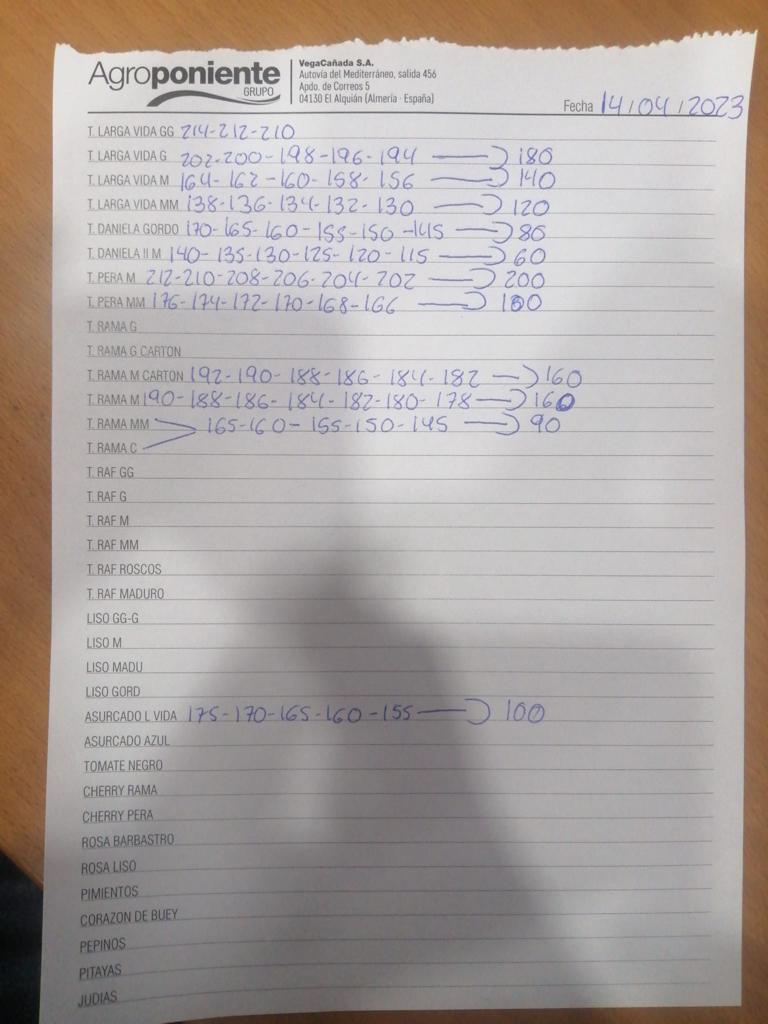 Agroponiente
GRUPO
VegaCañada S.A.
Autovía del Mediterráneo, salida 456
Apdo. de Correos 5
04130 El Alquián (Almería - España)
Fecha 14/04/2023
T. LARGA VIDA GG 214-212-210
T. LARGA VIDA G 202-200-198-196-194 → 180
T. LARGA VIDA M 164-162-160-158-156 → 140
T. LARGA VIDA MM 138-136-134-132-130 → 120
T. DANIELA GORDO 170-165-160-155-150-145 → 80
T. DANIELA II M 140-135-130-125-120-115 → 60
T. PERA M 212-210-208-206-204-202 → 200
T. PERA MM 176-174-172-170-168-166 → 100
T. RAMA G
T. RAMA G CARTON
T. RAMA M CARTON 192-190-188-186-184-182 → 160
T. RAMA M 190-188-186-184-182-180-178 → 160
T. RAMA MM 165-160-155-150-145 → 90
T. RAMA C
T. RAF GG
T. RAF G
T. RAF M
T. RAF MM
T. RAF ROSCOS
T. RAF MADURO
LISO GG-G
LISO M
LISO MADU
LISO GORD
ASURCADO L VIDA 175-170-165-160-155 → 100
ASURCADO AZUL
TOMATE NEGRO
CHERRY RAMA
CHERRY PERA
ROSA BARBASTRO
ROSA LISO
PIMIENTOS
CORAZON DE BUEY
PEPINOS
PITAYAS
JUDIAS